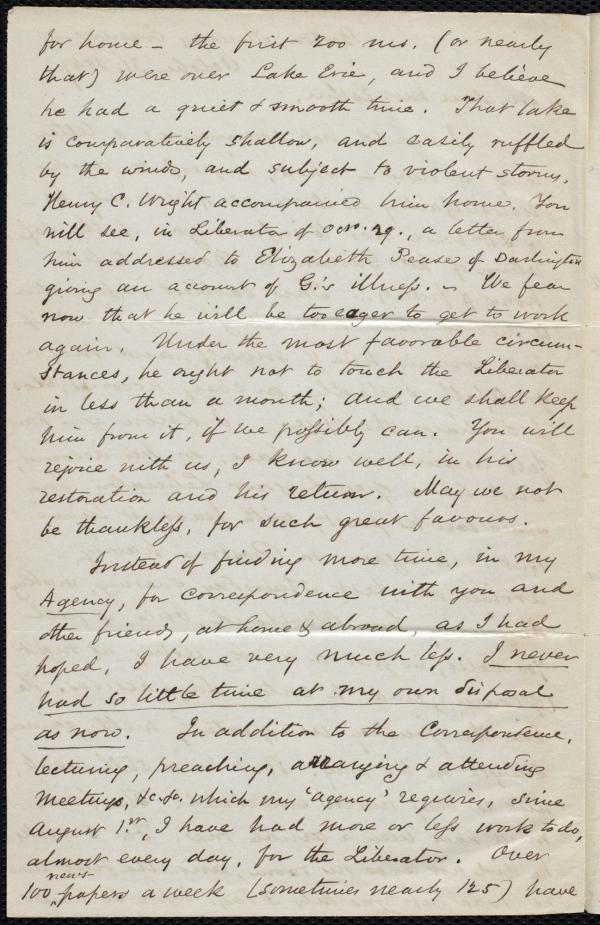 for home – the first 200 ms. (or nearly
that) were over Lake Erie, and I believe
he had a quiet & smooth time. That lake
is comparatively shallow, and easily ruffled
by the winds, and subject to violent storms.
Henry C. Wright accompanied him home. You
will see, in Liberator of Oct. 29., a letter from
him addressed to Elizabeth Pease of Darlington
giving an account of G.'s illness. – We fear
now that he will be too eager to get to work
again. Under the most favorable circum-
stances, he ought not to touch the Liberator
in less than a month; and we shall keep
him from it, if we possibly can. You will
rejoice with us, I know well, in his
restoration and his return. May we not
be thankless, for such great favours.
Instead of finding more time, in my
Agency, for correspondence with you and
other friends, at home & abroad, as I had
hoped, I have very much less. I never
had so little time at my own disposal
as now. In addition to the Correspondence,
lecturing, preaching, arranging & attending
Meetings, &c. &c. which my 'agency' requires, since
August 1st, I have had more or less work to do,
almost every day, for the Liberator. Over
100 newspapers a week (sometimes nearly 125) have